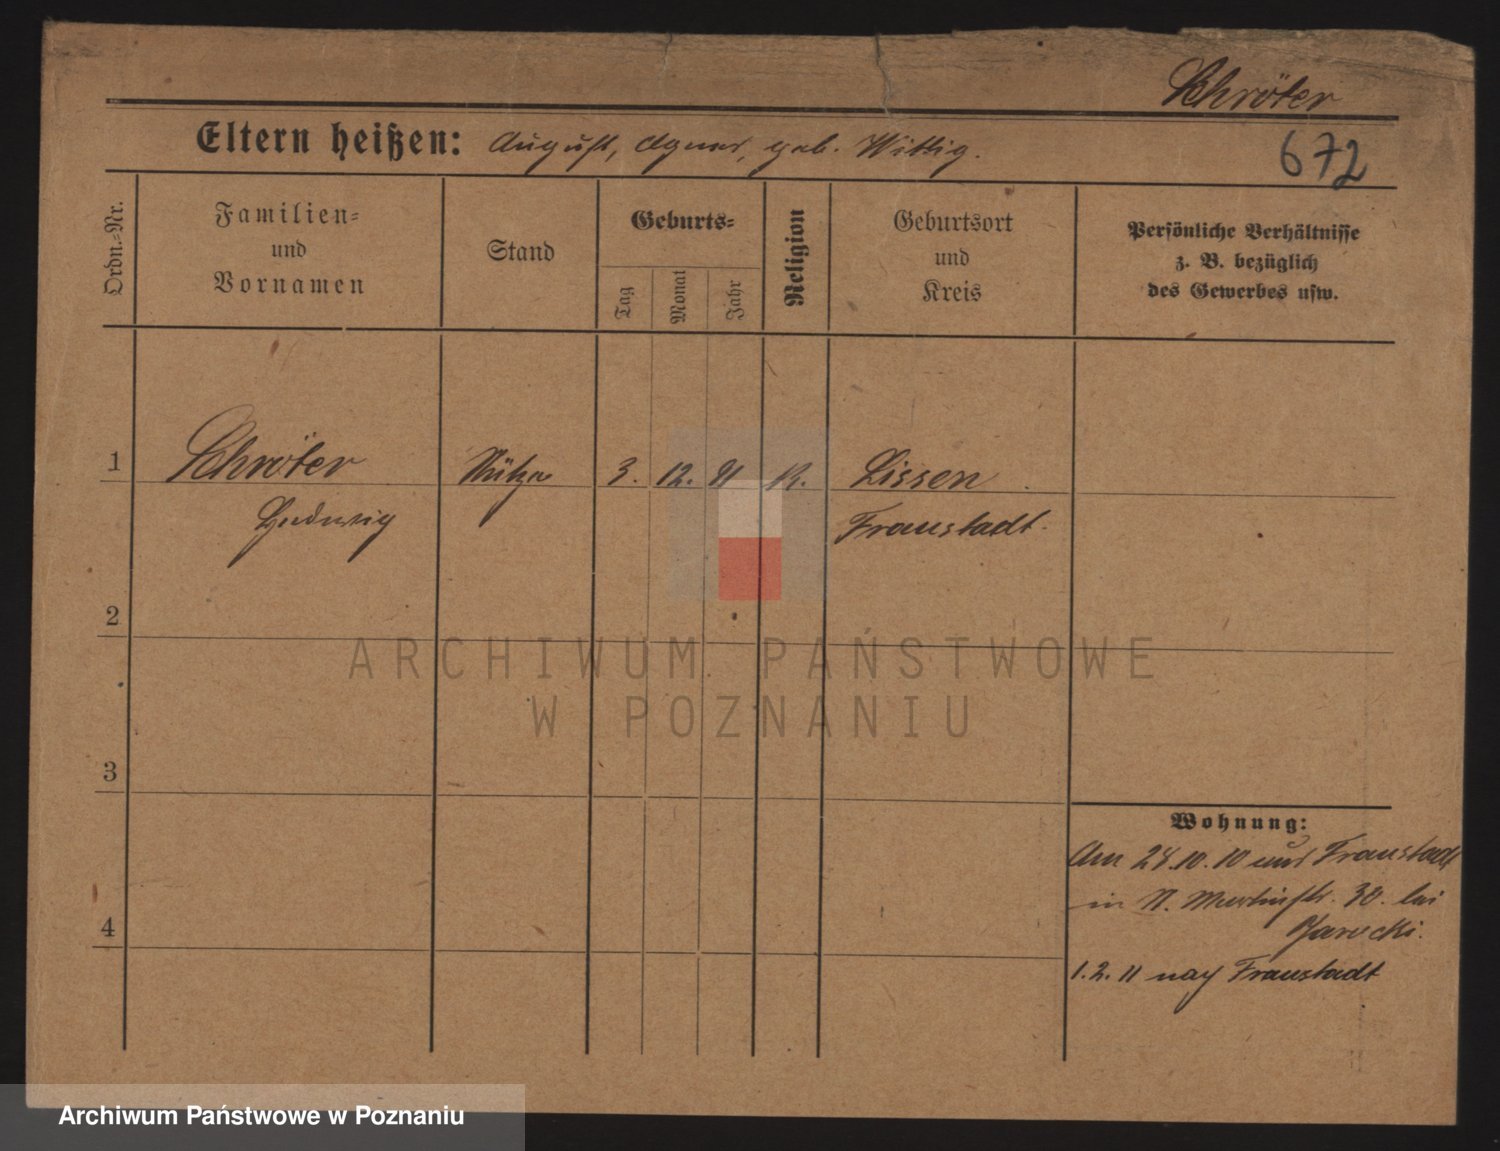 Schröter
Eltern heißen: August, Agnes, geb. Wittig.
672
Ordn.=Nr.
Familien=
und
Vornamen
Stand
Geburts=
Tag
Monat
Jahr
Religion
Geburtsort
und
Kreis
Persönliche Verhältnisse
z. B. bezüglich
des Gewerbes usw.
1
Schröter
Hedwig
Stütze
3. 12.
K.
Lissen
Fraustadt.
2
3
4
Wohnung:
Am 24.10.10 aus Fraustadt
in St. Martinstr. 30. bei
Jarocki.
1.2.11 nach Fraustadt
ARCHIWUM PAŃSTWOWE
W POZNANIU
Archiwum Państwowe w Poznaniu